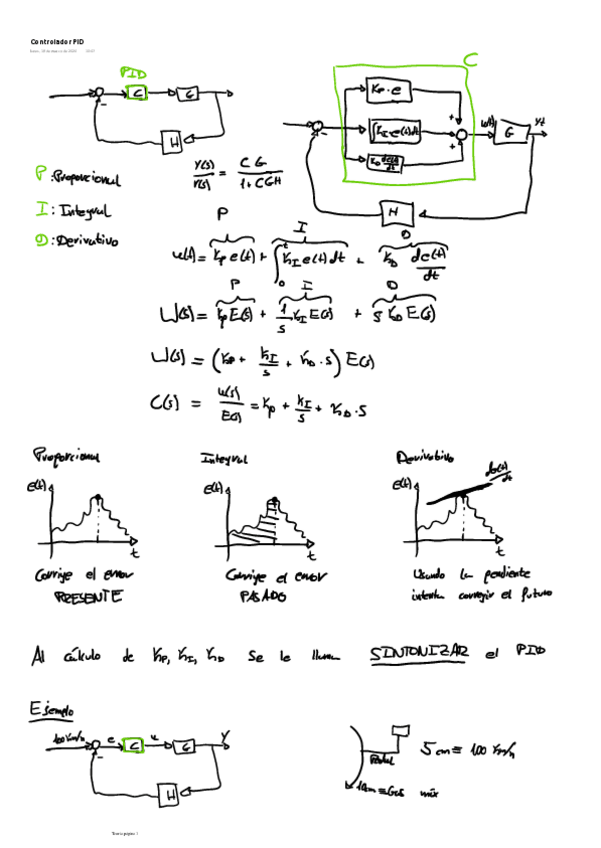 Controlador PID
PID
C
G
H
C
Kp·e
∫K_I e(t)dt
K_D de(t)/dt
u(t)
G
Yt
H
P: Proporcional
Y(s)/r(s) = CG/(1+CGH)
I: Integral
D: Derivativo
P I D
u(t) = Kp e(t) + ∫₀ᵗ K_I e(t)dt + K_D de(t)/dt
P I D
U(s) = Kp E(s) + 1/s K_I E(s) + s K_D E(s)
U(s) = (Kp + K_I/s + K_D·s) E(s)
C(s) = U(s)/E(s) = Kp + K_I/s + K_D·s
Proporcional Integral Derivativo
E(t) t
E(t) t
E(t) de(t)/dt t
Corrige el error
PRESENTE
Corrige el error
PASADO
Usando la pendiente
intenta corregir el futuro
Al cálculo de Kp, K_I, K_D se le llama SINTONIZAR el PID
Ejemplo
100 Km/h e C u G Y
H
Pedal
5cm ≡ 100 Km/h
máx